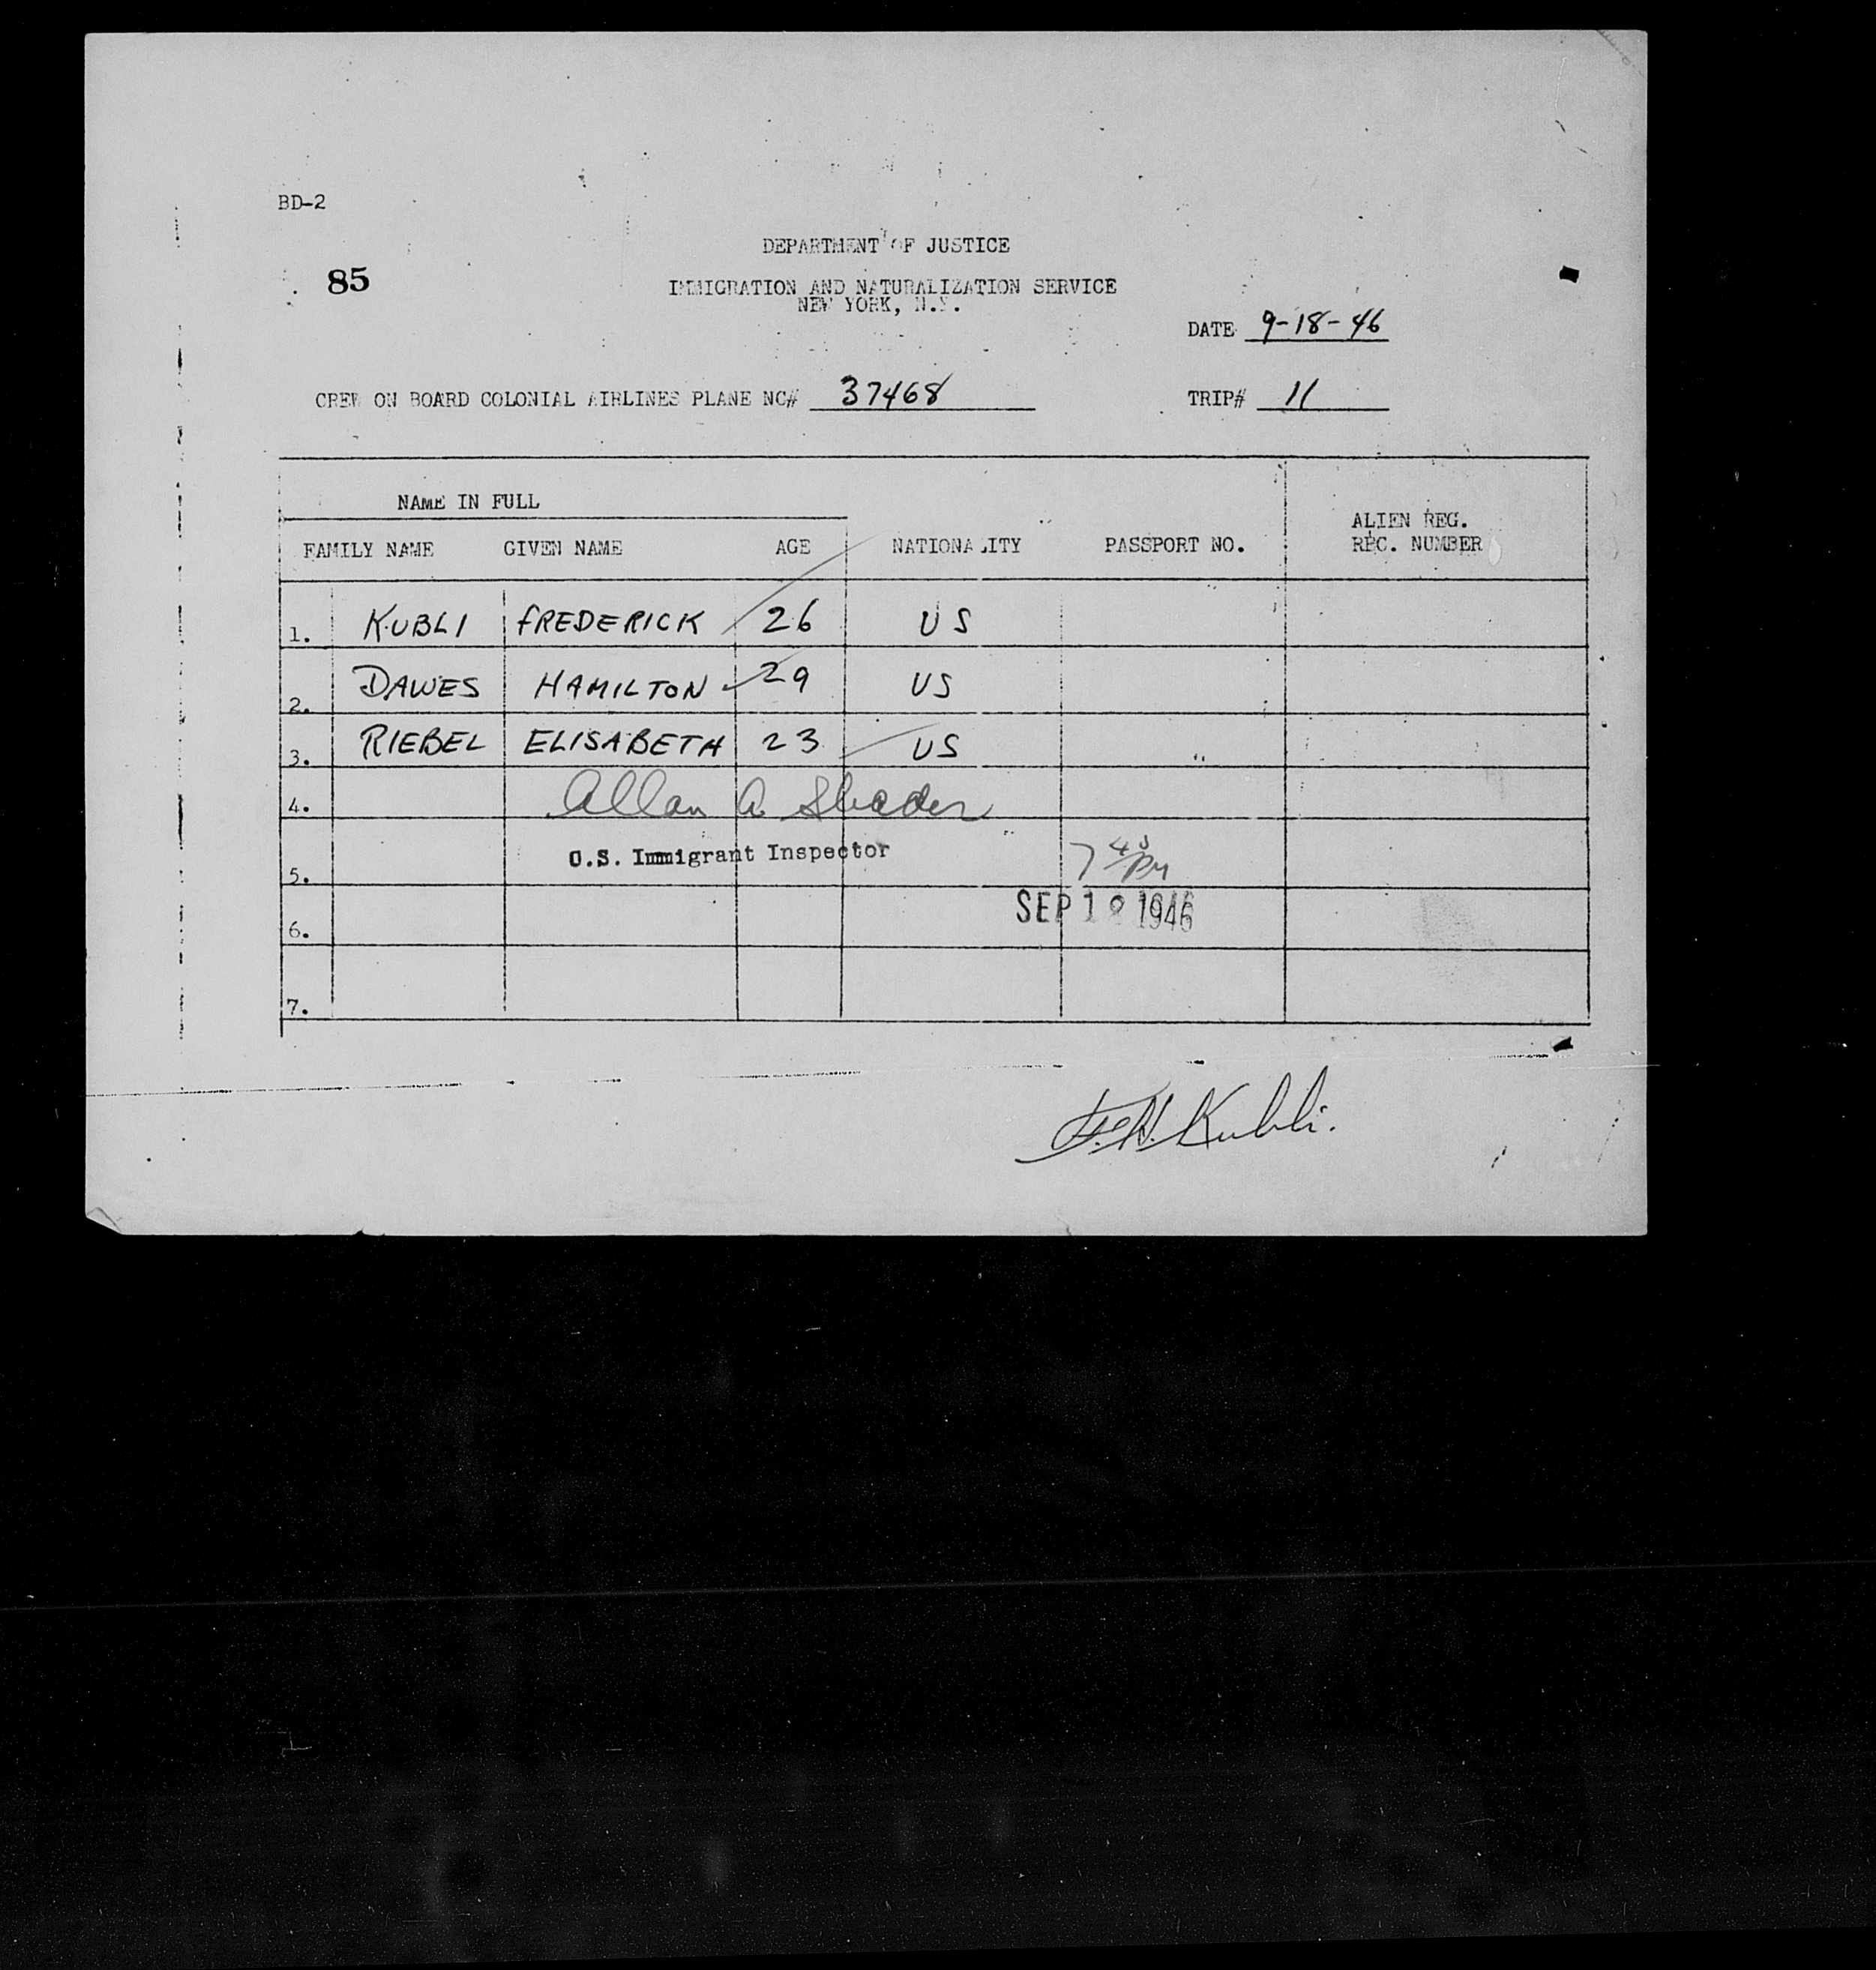 BD-2
DEPARTMENT OF JUSTICE
85
IMMIGRATION AND NATURALIZATION SERVICE
NEW YORK, N.Y.
DATE 9-18-46
CREW ON BOARD COLONIAL AIRLINES PLANE NC# 37468 TRIP# 11
NAME IN FULL
FAMILY NAME GIVEN NAME AGE NATIONALITY PASSPORT NO. ALIEN REG. REC. NUMBER
1. KUBLI FREDERICK 26 US
2. DAWES HAMILTON 29 US
3. RIEBEL ELISABETH 23 US
4. Allan A Shader
U.S. Immigrant Inspector
5. 7 45 PM
SEP 1 1946
6.
7.
F.H. Kubli.